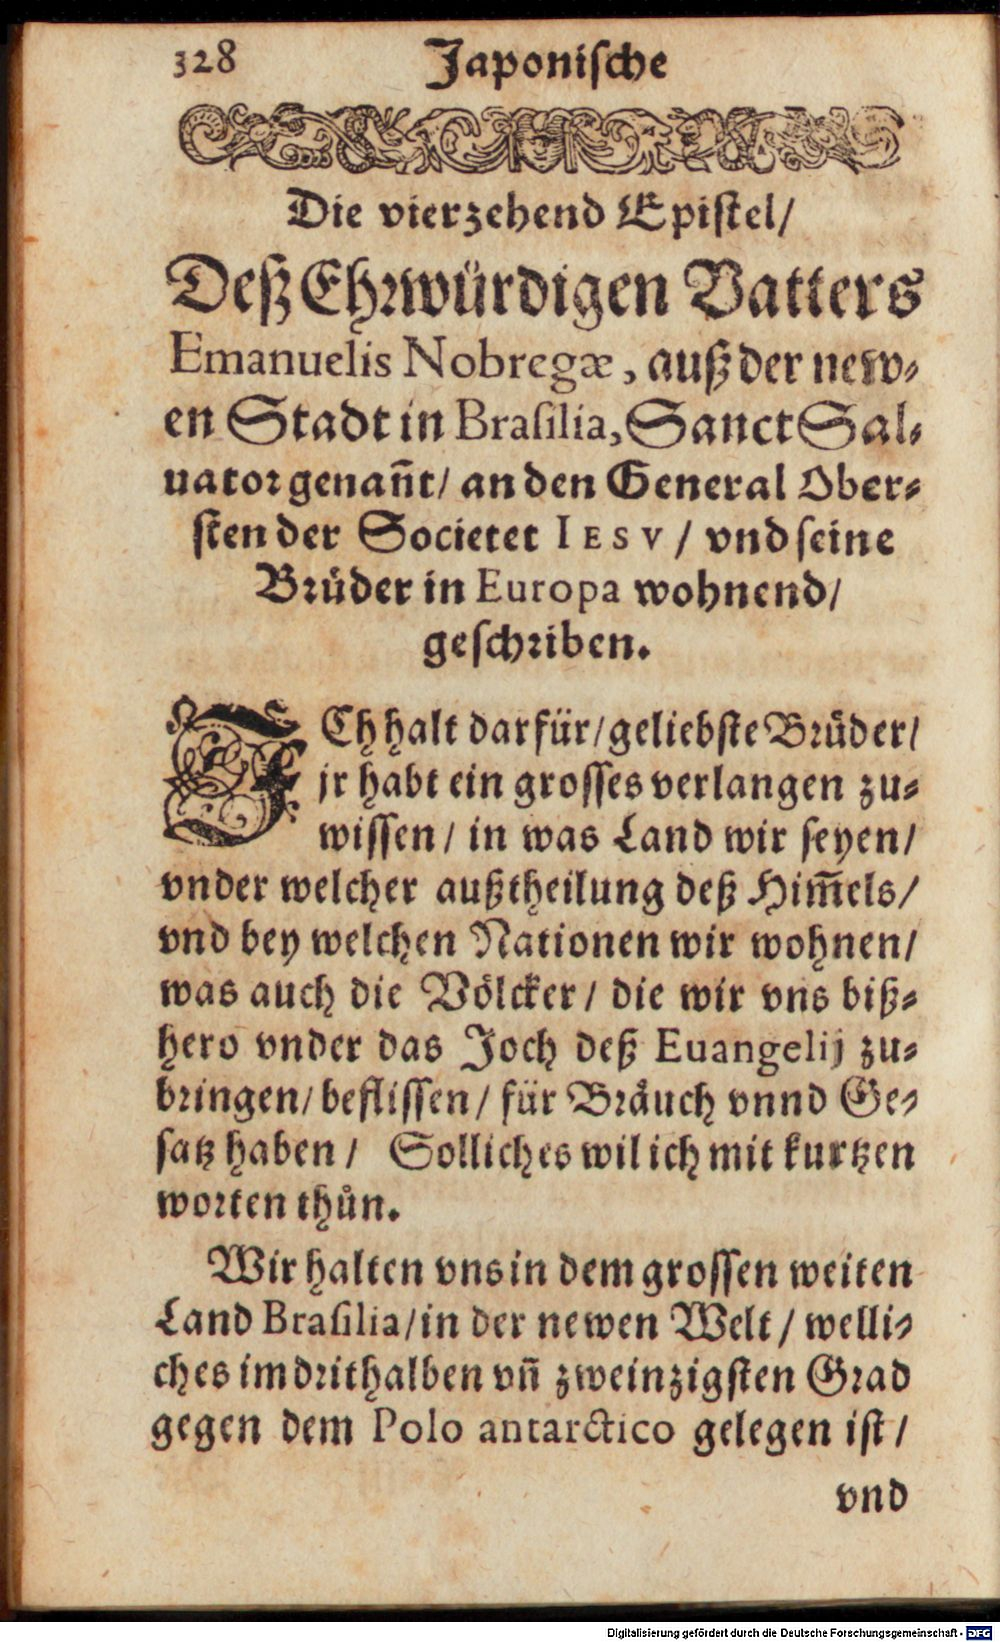 328 Japonische
Die vierzehend Epistel/
Deß Ehrwürdigen Vatters
Emanuelis Nobregæ, auß der new-
en Stadt in Brasilia, Sanct Sal-
uator genañt/ an den General Ober-
sten der Societet IESV/ vnd seine
Brůder in Europa wohnend/
geschriben.
ICh halt darfür/ geliebste Brůder/
jr habt ein grosses verlangen zu-
wissen/ in was Land wir seyen/
vnder welcher außtheilung deß Him̃els/
vnd bey welchen Nationen wir wohnen/
was auch die Völcker/ die wir vns biß-
hero vnder das Joch deß Euangelij zu-
bringen/ beflissen/ für Bräuch vnnd Ge-
satz haben/ Solliches wil ich mit kurtzen
worten thůn.
Wir halten vns in dem grossen weiten
Land Brasilia/ in der newen Welt/ welli-
ches im drithalben vñ zweinzigsten Grad
gegen dem Polo antarctico gelegen ist/
vnd
Digitalisierung gefördert durch die Deutsche Forschungsgemeinschaft - DFG